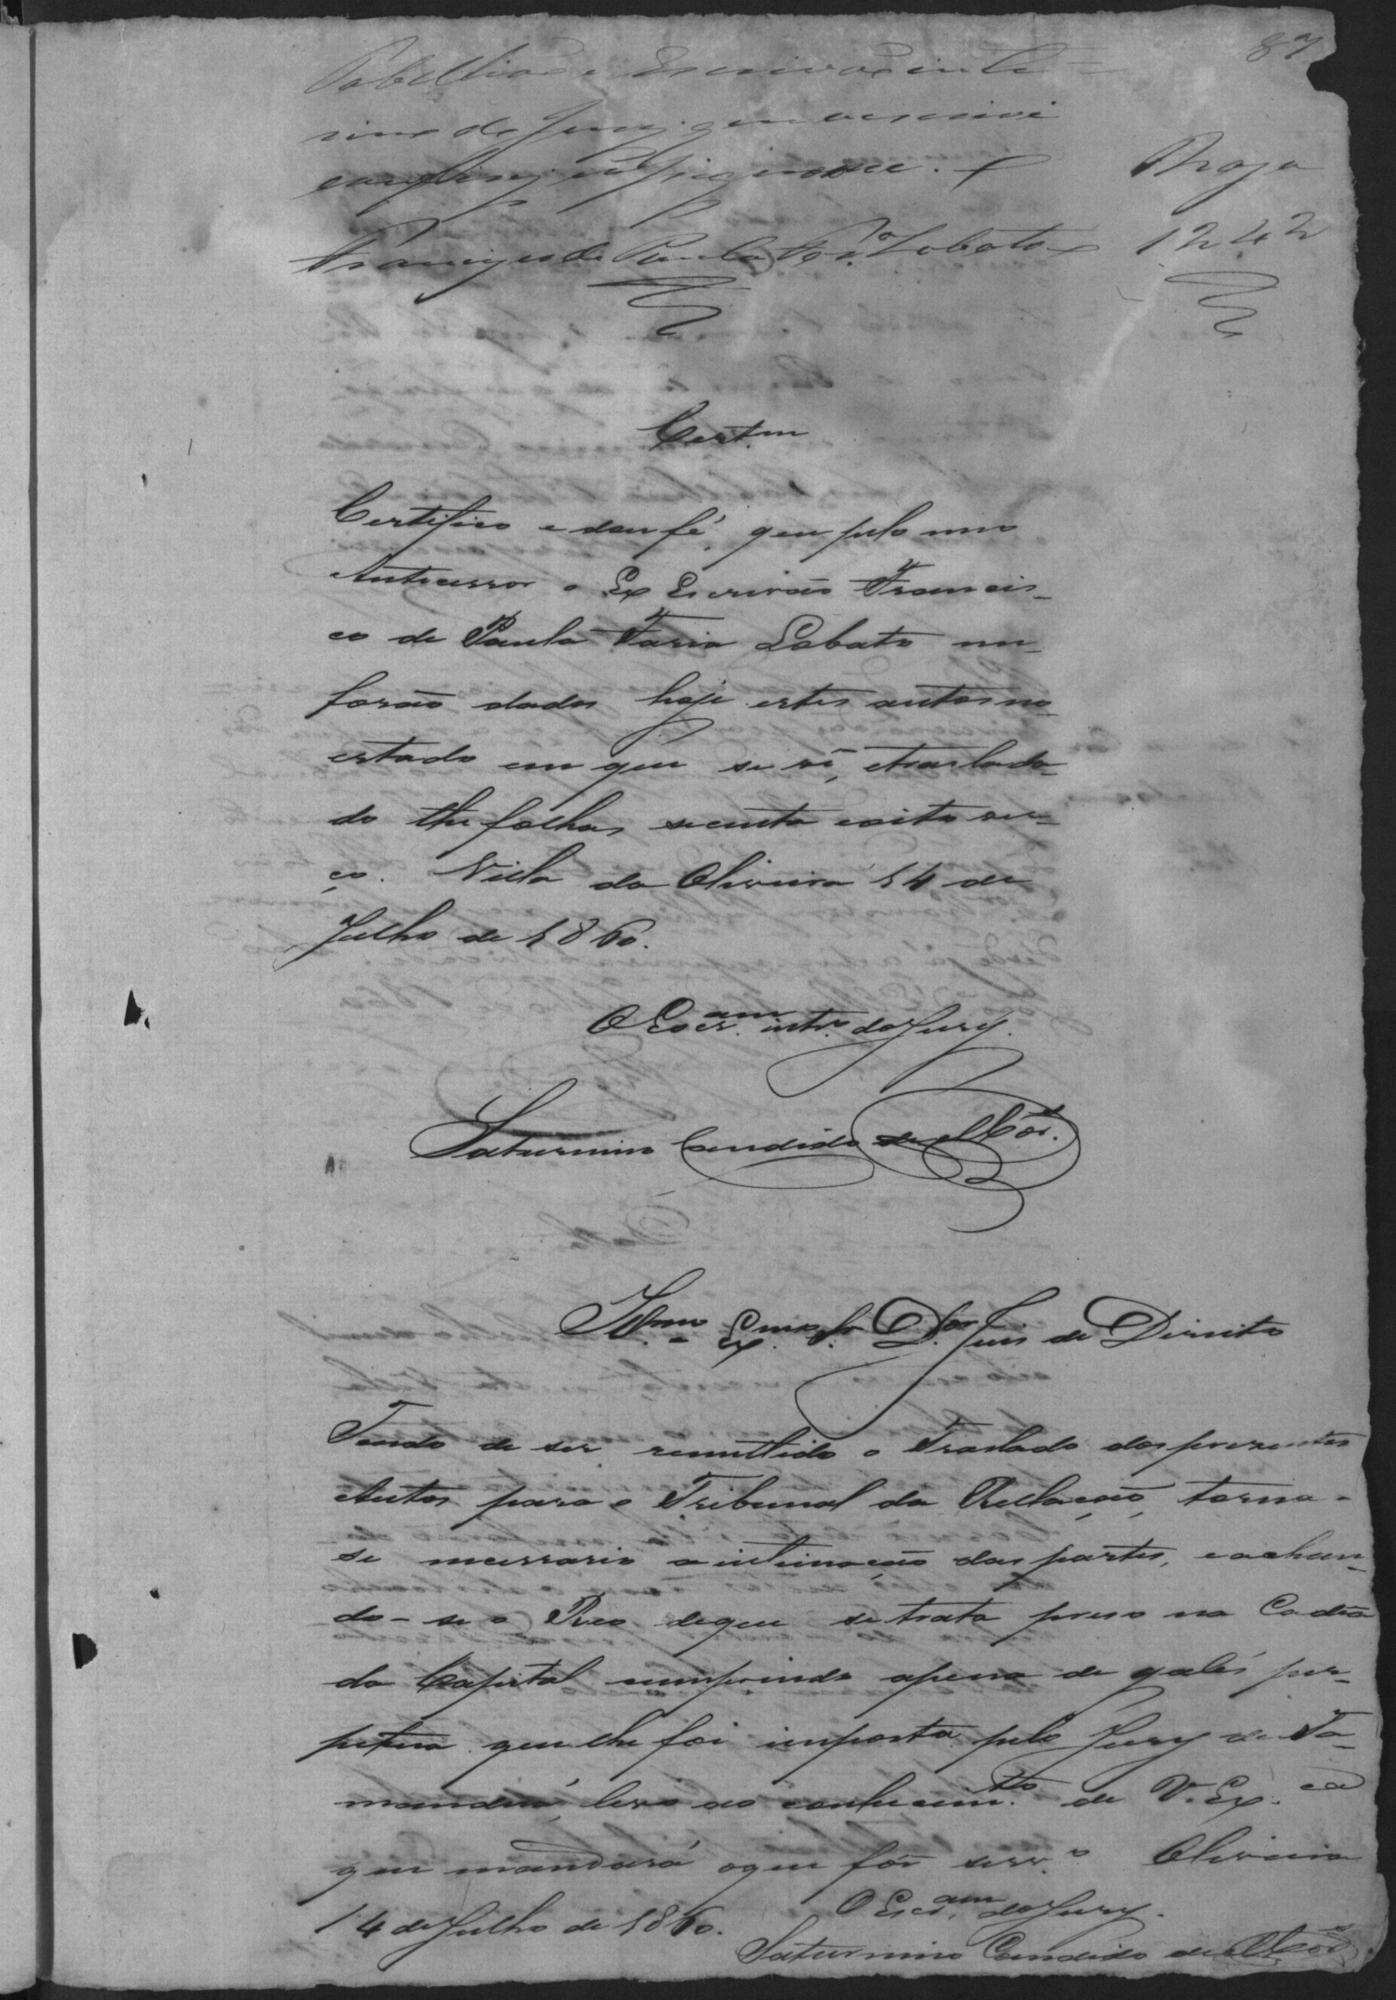 87
Tabellião e Escrivão inte=
rino do Jury que o escrevi
conferi e assignei.
Francisco de Paula Fr.ª Lobato
Raza
1242
Cert.m
Certifico e dou fé, que pelo meu
Antecessor o Ex Escrivão Francis-
co de Paula Faria Lobato me
forão dados hoje estes autos no
estado em que se vê, e traslada-
do the folhas secenta e oito ver-
ço. Villa da Oliveira 14 de
Julho de 1860.
O Escr.am intr.º do Jury.
Saturnino Candido de
Illmo. Exmo. Sr. Dor. Juis de Direito
Tendo de ser remettido o Traslado dos presentes
Autos para o Tribunal da Rellação, torna-
se necessario a intimação das partes, e achan-
do-se o Reo de que se trata preso na Cadêa
da Capital cumprindo a pena de galés per-
petua que lhe foi imposta pelo Jury de Ta-
manduá, levo ao conhecim.to de V. Ex.cia
que mandará o que fôr serv.º Oliveira
14 de Julho de 1860.
O Escr.am do Jury.
Saturnino Candido de